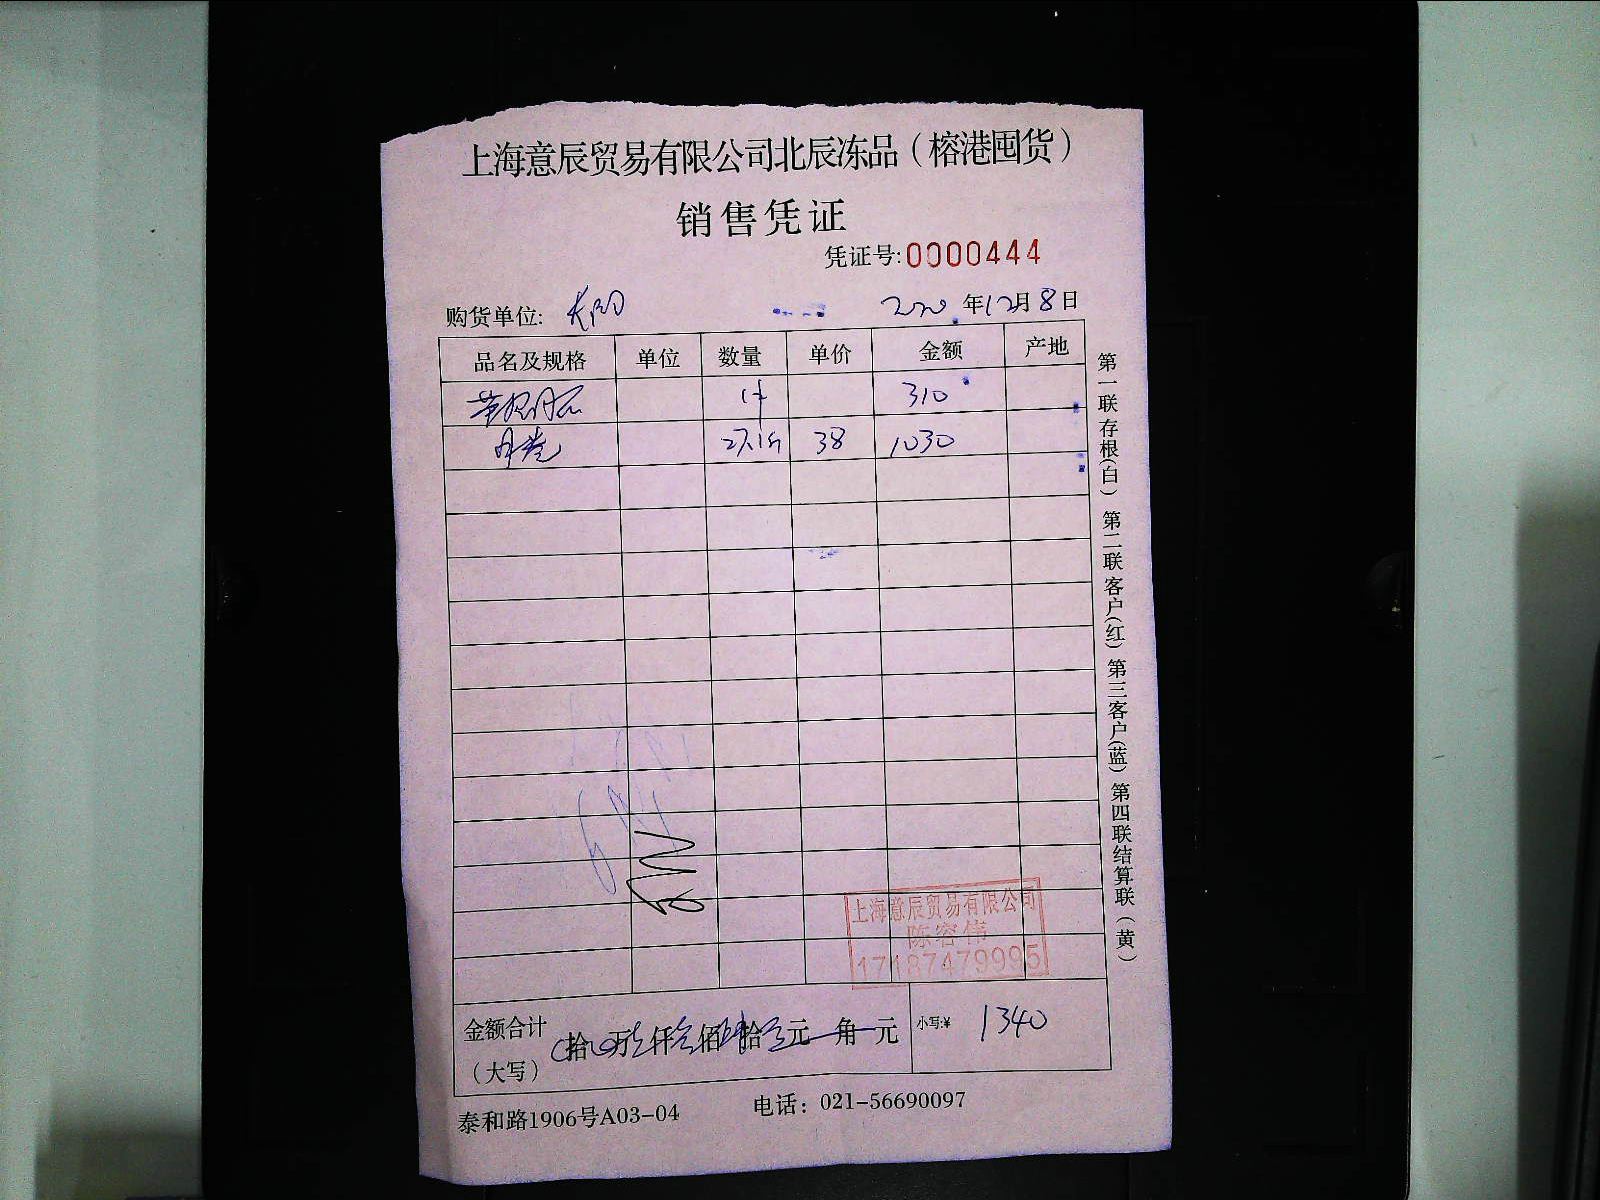 上海意辰贸易有限公司北辰冻品（榕港囤货）
销售凭证
凭证号:0000444
购货单位:
2020年12月8日
品名及规格 单位 数量 单价 金额 产地
1件 310
27.1斤 38 1030
第一联存根(白) 第二联客户(红) 第三客户(蓝) 第四联结算联(黄)
上海意辰贸易有限公司
陈容伟
17187479995
金额合计（大写） 拾 万 仟 佰 拾 元 角 元 小写:¥ 1340
泰和路1906号A03-04 电话：021-56690097